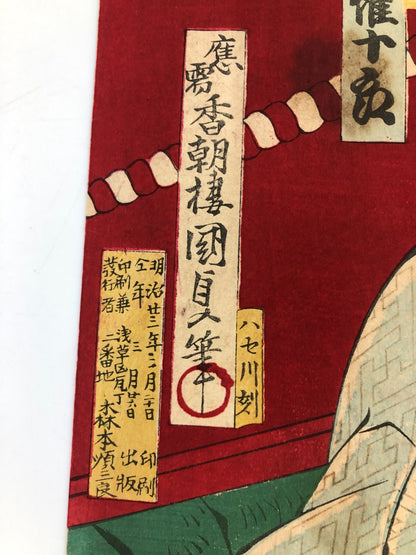 權十郎
應需香朝樓國貞筆
ハセ川刻
明治廿三年三月二十日印刷
仝年三月廿六日出版
印刷兼
發行者
浅草区瓦丁
二番地
森本順三良